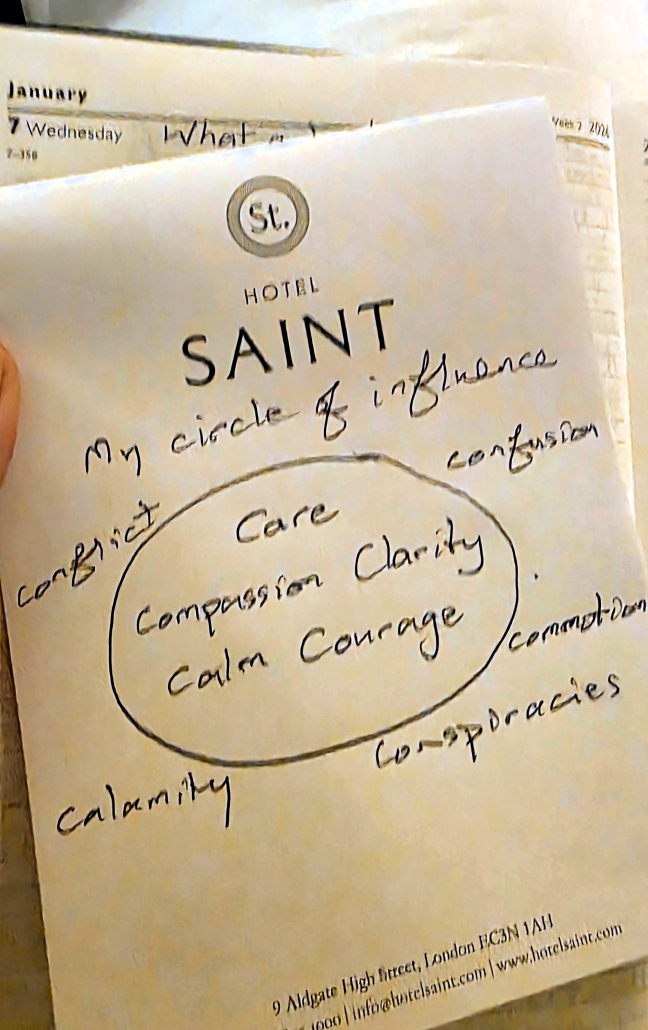 January
7 Wednesday What
7-358
St.
HOTEL
SAINT
My circle of influence
confusion
conflict
Care
Compassion Clarity
Calm Courage
commotion
Conspiracies
Calamity
9 Aldgate High Street, London EC3N 1AH
1000 | info@hotelsaint.com | www.hotelsaint.com